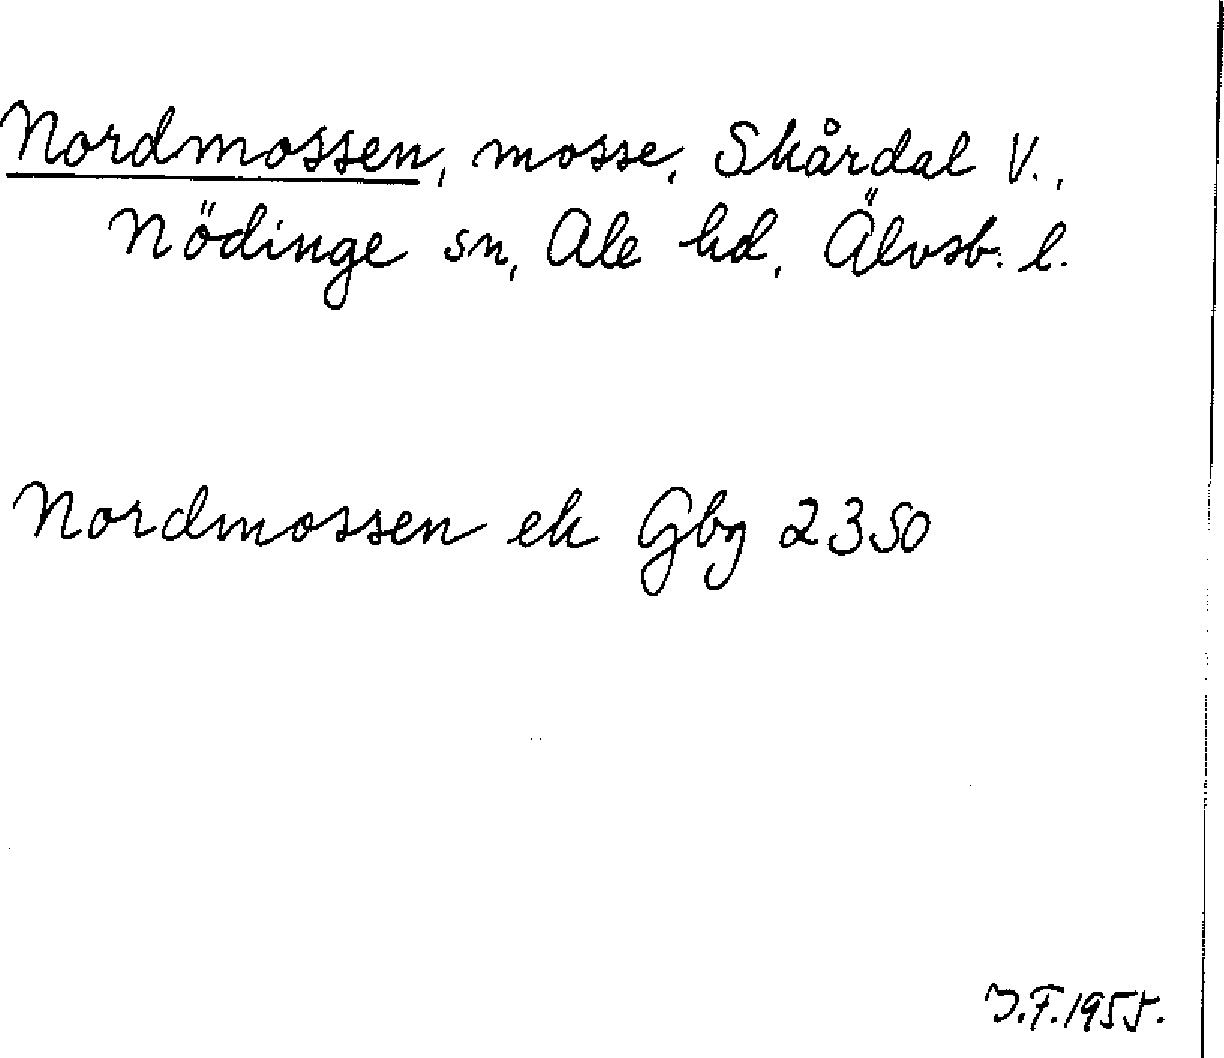 Nordmossen, mosse, Skårdal V.,
Nödinge sn, Ale hd, Älvsb. l.
Nordmossen ek Gbg 2350
J.F. 1955.